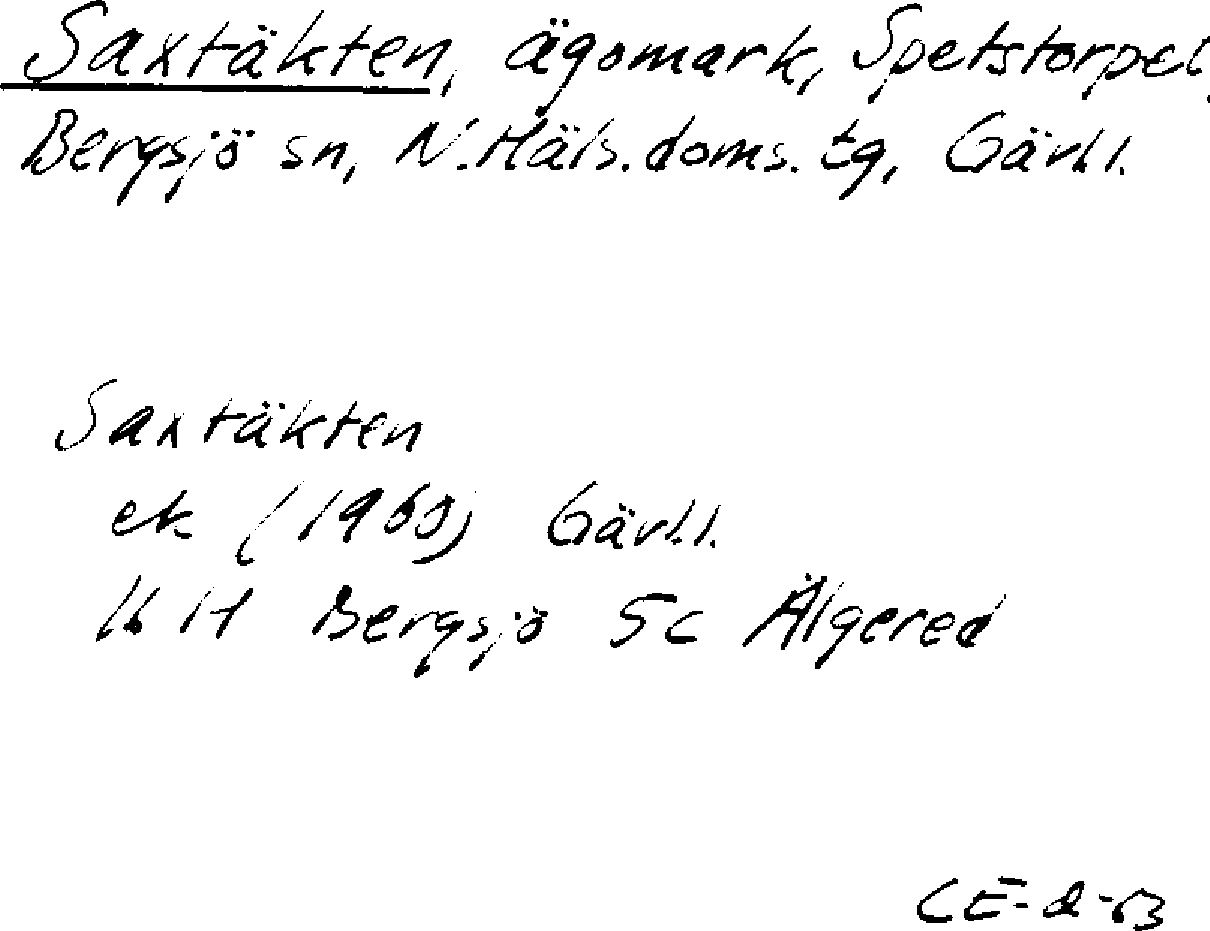 Saxtäkten, ägomark, Spetstorpet,
Bergsjö sn, N.Häls.doms.tg, Gävl.l.
Saxtäkten
ek (1960) Gävl.l.
16 H Bergsjö 5c Älgered